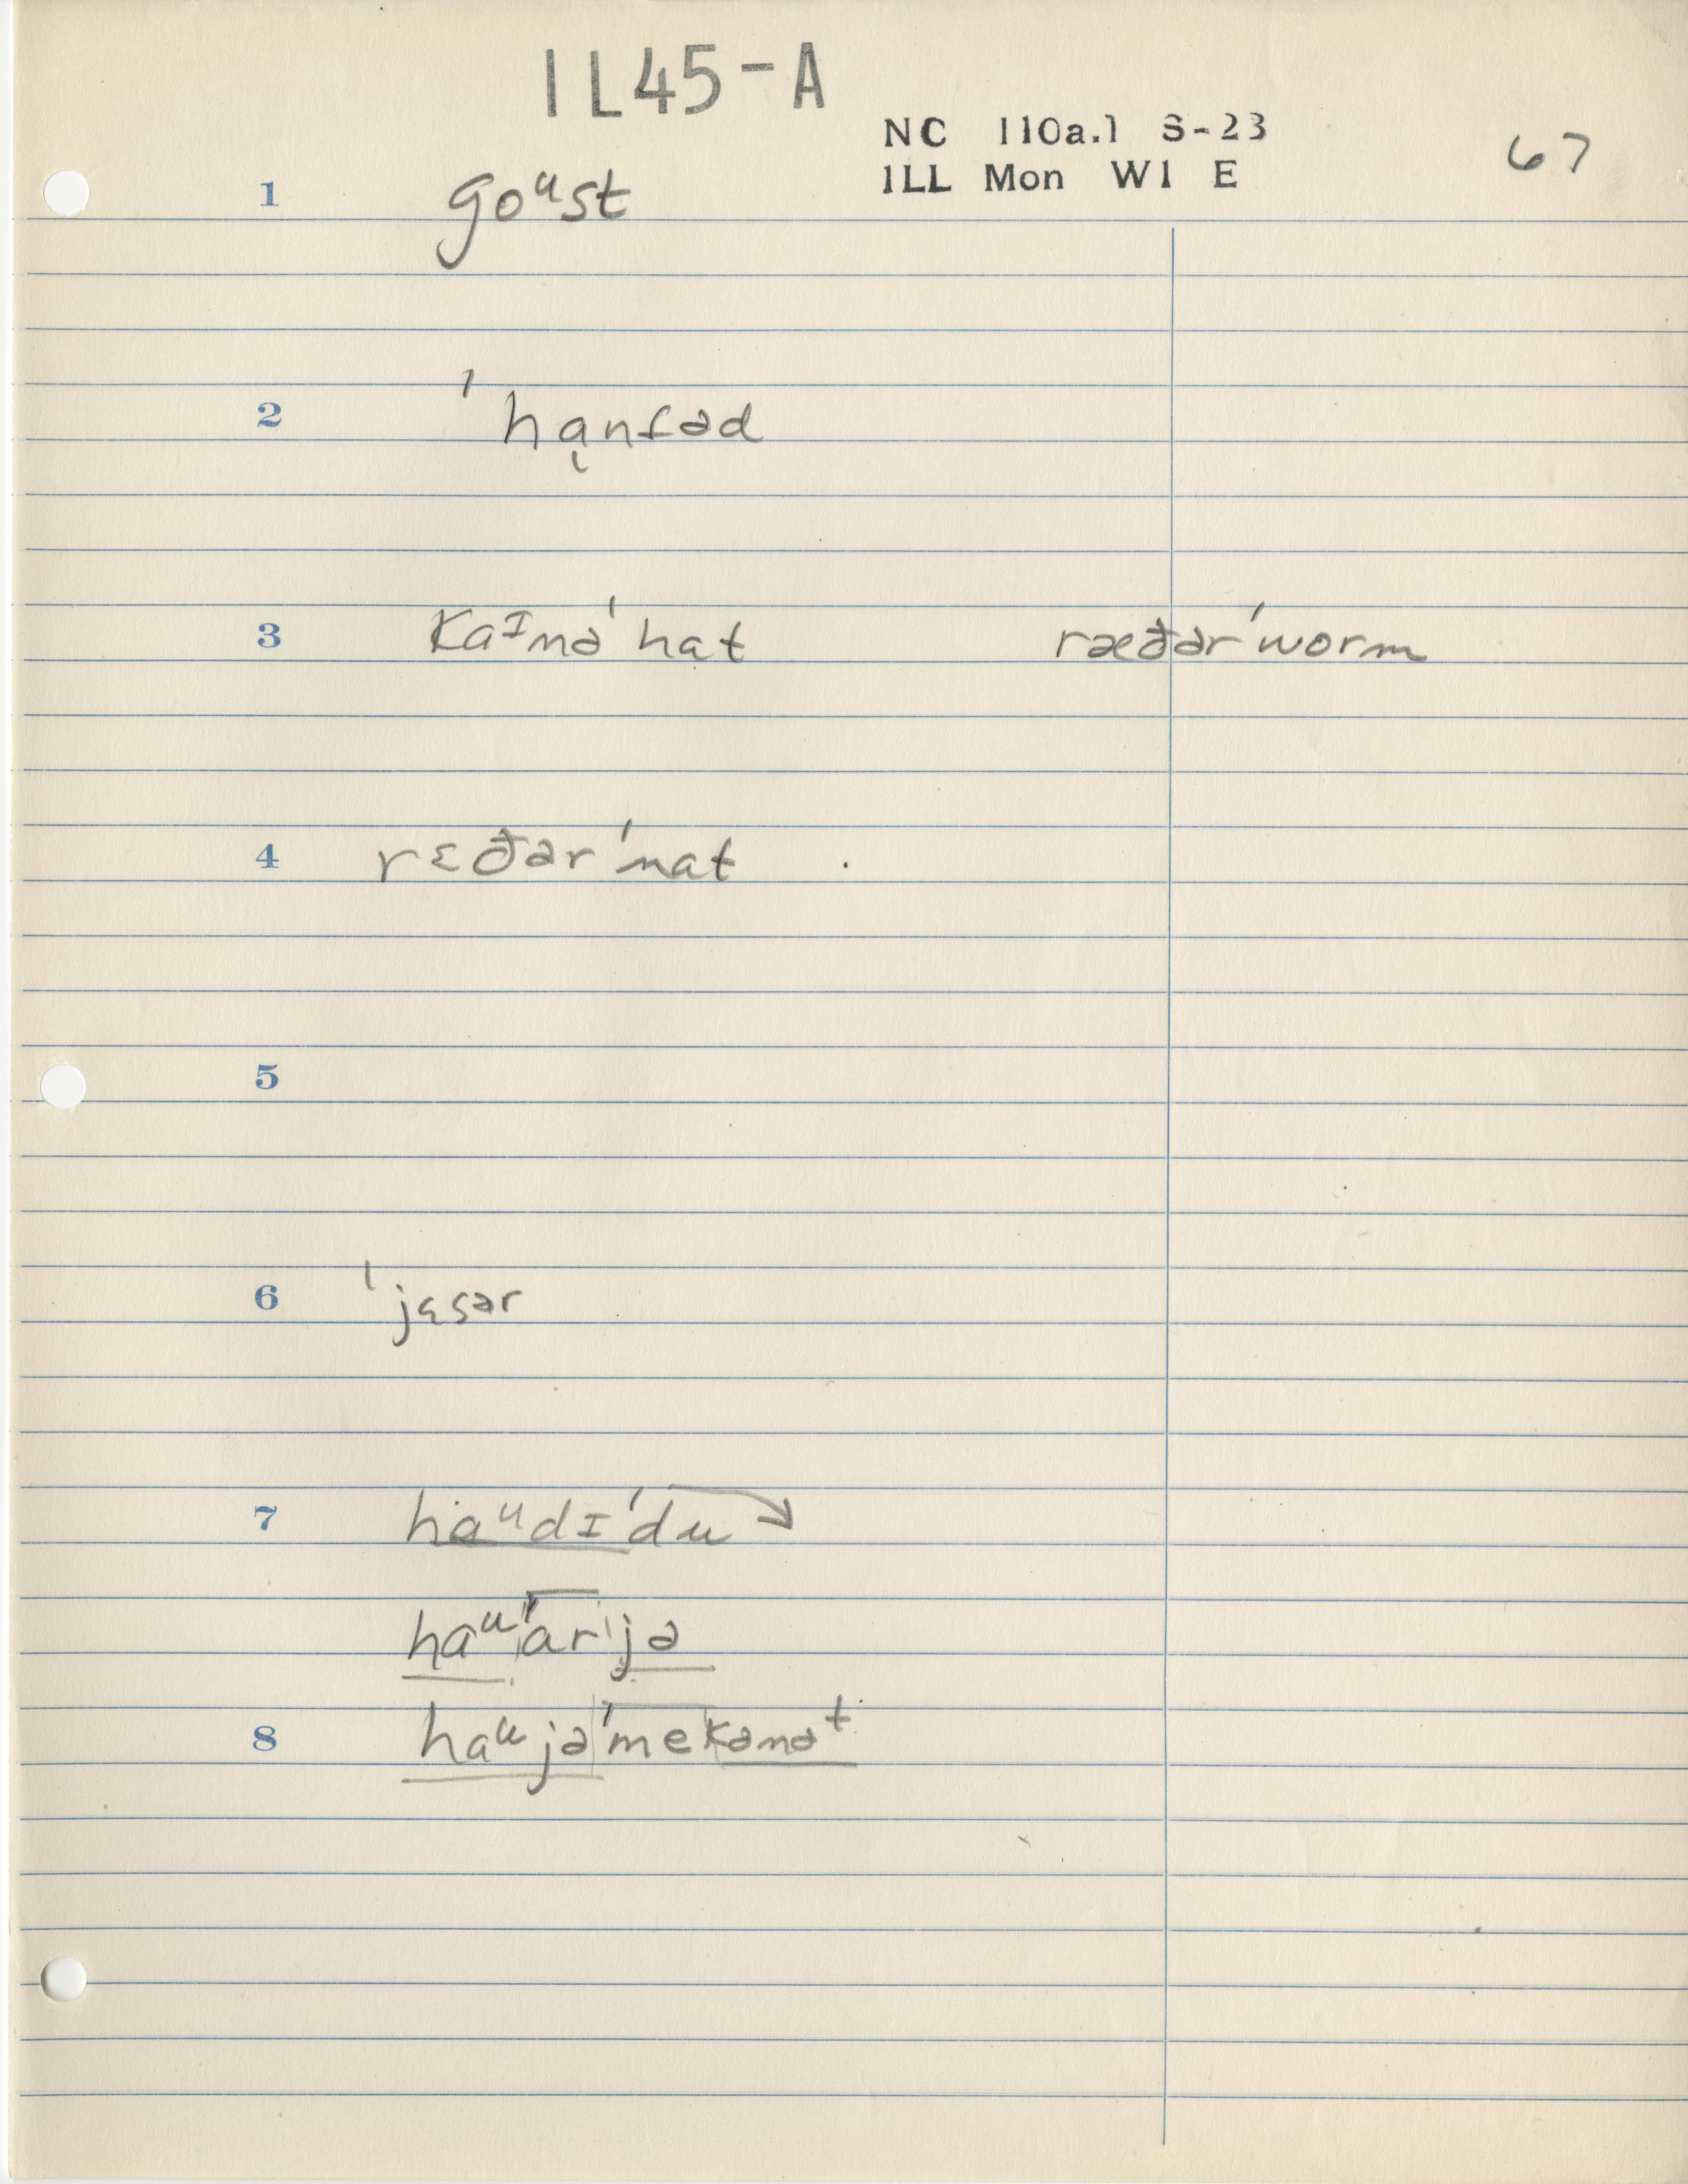 IL45-A
NC 110a.1 S-23
ILL Mon W1 E
67
1 goᵘst
2 ˈhąnfəd
3 kaᴵndəˈhat ræðərˈworm
4 rɛðərˈnat
5
6 ˈjɛsər
7 haᵘdɪˈdu
haᵘˈarjə
8 haᵘjəˈmekənəᵗ